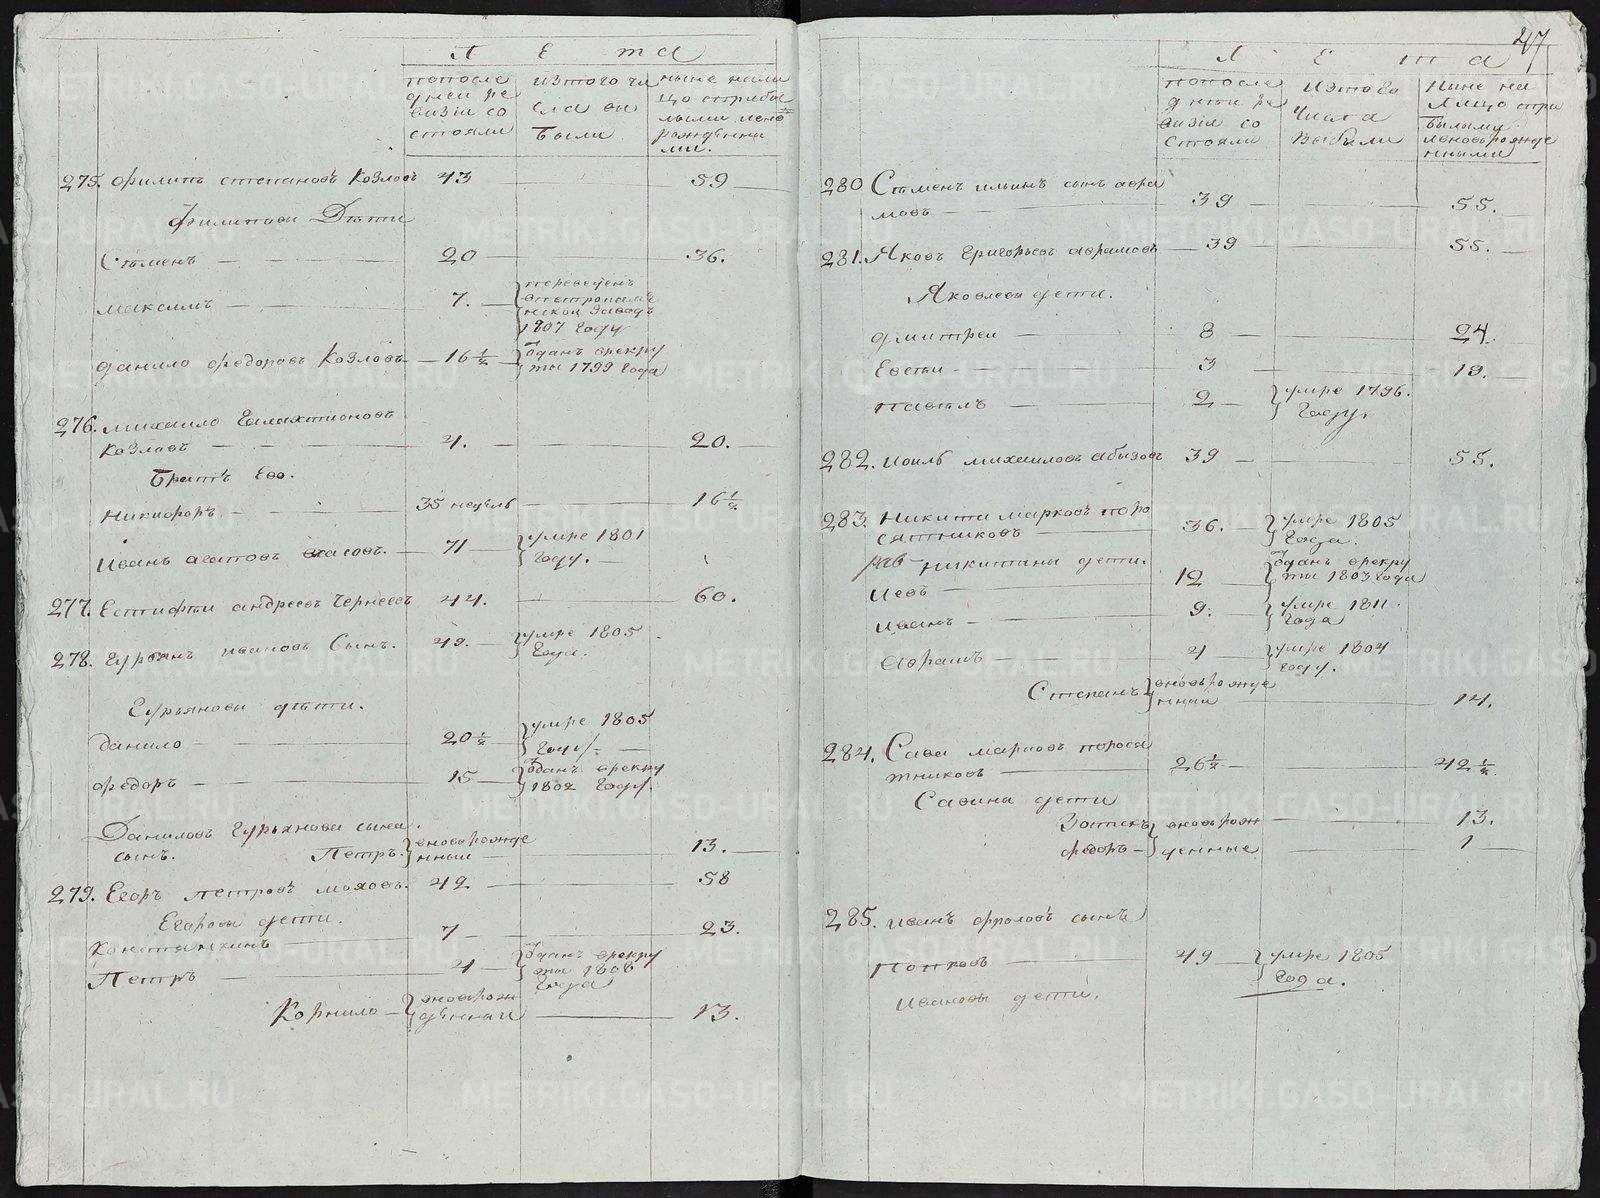 Л е т а
попосле изтого чи ныне нали
дней ре сла вы цо сприбы
визіи со были лыми ино
стояли рожденны
ми.
275. Филипъ степановъ Козловъ 43 59
Филипови Дѣти
Сѣменъ 20 36.
Максимъ 7. переведенъ
нской заводъ
1807 году
данило федоровъ Козловъ 16 1/2 отданъ врекру
ты 1799 года
276. михаило Галахтионовъ
Козловъ 4. 20.
Братъ Его.
Никифоръ 35 недѣль 16 1/2
Иванъ агапов власовъ. 71 умре 1801
году.
277. Естифѣи андреевъ Чернеевъ 44. 60.
278. Гурьянъ ивановъ Сынъ. 49. умре 1805
года.
Гурьяновы дѣти.
данило 20 1/2 умре 1805
году
федоръ 15 отданъ врекру
1802 году.
Даниловъ Гурьянова сына
сынъ. Петръ. вноворожде
нныи 13.
279. Егоръ петровъ моховъ. 42 58
Егоровы дети.
Константинъ 7 23.
Петръ 4 отданъ врекру
ты 1806
года
Корнило вноворож
денныи 13.
47
Л е т а
попосле изтого Ныне на
дней ре Числа Лицо спри
визіи со выбыли былыми
стояли ивноврожде
нными
280 Сѣменъ ильинъ сынъ авра
мовъ 39 55.
281. Яковъ Григорьевъ аврамовъ 39 55.
Яковлевы дети.
дмитреи 8 24.
Евсти 3 19.
Павелъ 2 умре 1796.
году.
282. Иоиль михаиловъ абызовъ 39 55.
283. Никита марковъ поро
сятниковъ 36. умре 1805
года.
Никитины дети.
Иевъ 12 отданъ врекру
ты 1803 года
Иванъ 9. умре 1811.
года
аврамъ 4 умре 1804
году.
Степанъ вноворожде
нныи 14.
284. Сава марковъ порося
тниковъ 26 1/2 42 1/2.
Савины дети
вновьрож 13.
федоръ денные 1
285. иванъ фроловъ сынъ
Попковъ 49 умре 1805
года.
Ивановы дети.
METRIKI.GASO-URAL.RU